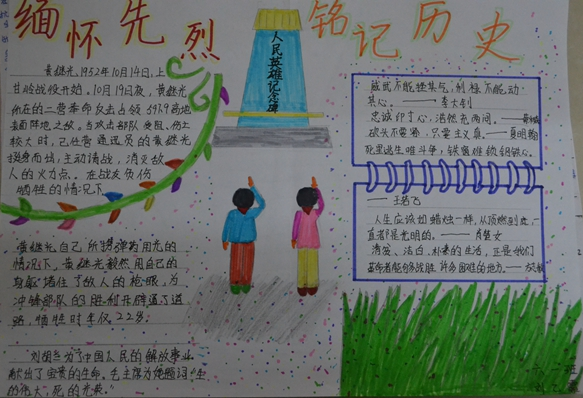 缅怀先烈 铭记历史
人民英雄纪念碑
黄继光,1952年10月14日,上
甘岭战役开始。10月19日夜,黄继光
所在的二营奉命反击占领597.9高地
表面阵地之敌。当攻击部队受阻,伤亡
较大时,已任营通讯员的黄继光
挺身而出,主动请战,消灭敌
人的火力点。在战友负伤
牺牲的情况下
黄继光自己所携弹药用光的
情况下,黄继光毅然用自己的
身躯堵住了敌人的枪眼,为
冲锋部队的胜利开辟通了道
路,牺牲时年仅22岁。
“刘胡兰为了中国人民的解放事业
献出了宝贵的生命。毛主席为她题词“生
的伟大,死的光荣。”
威武不能挫其气,利禄不能动
其心。——李大钊
忠诚印寸心,浩然充两间。
砍头不要紧,只要主义真。——夏明翰
死里逃生唯斗争,铁窗难锁钢铁心。
——王若飞
人生应该如蜡烛一样,从顶燃到底,一
直都是光明的。——肖楚女
清贫、洁白、朴素的生活,正是我们
革命者能够战胜许多困难的地方。——方志敏